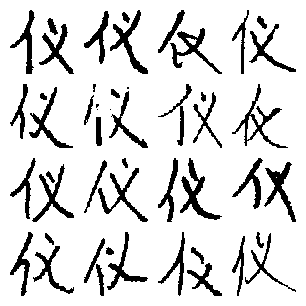 仪仪仪仪
仪仪仪仪
仪仪仪仪
仪仪仪仪